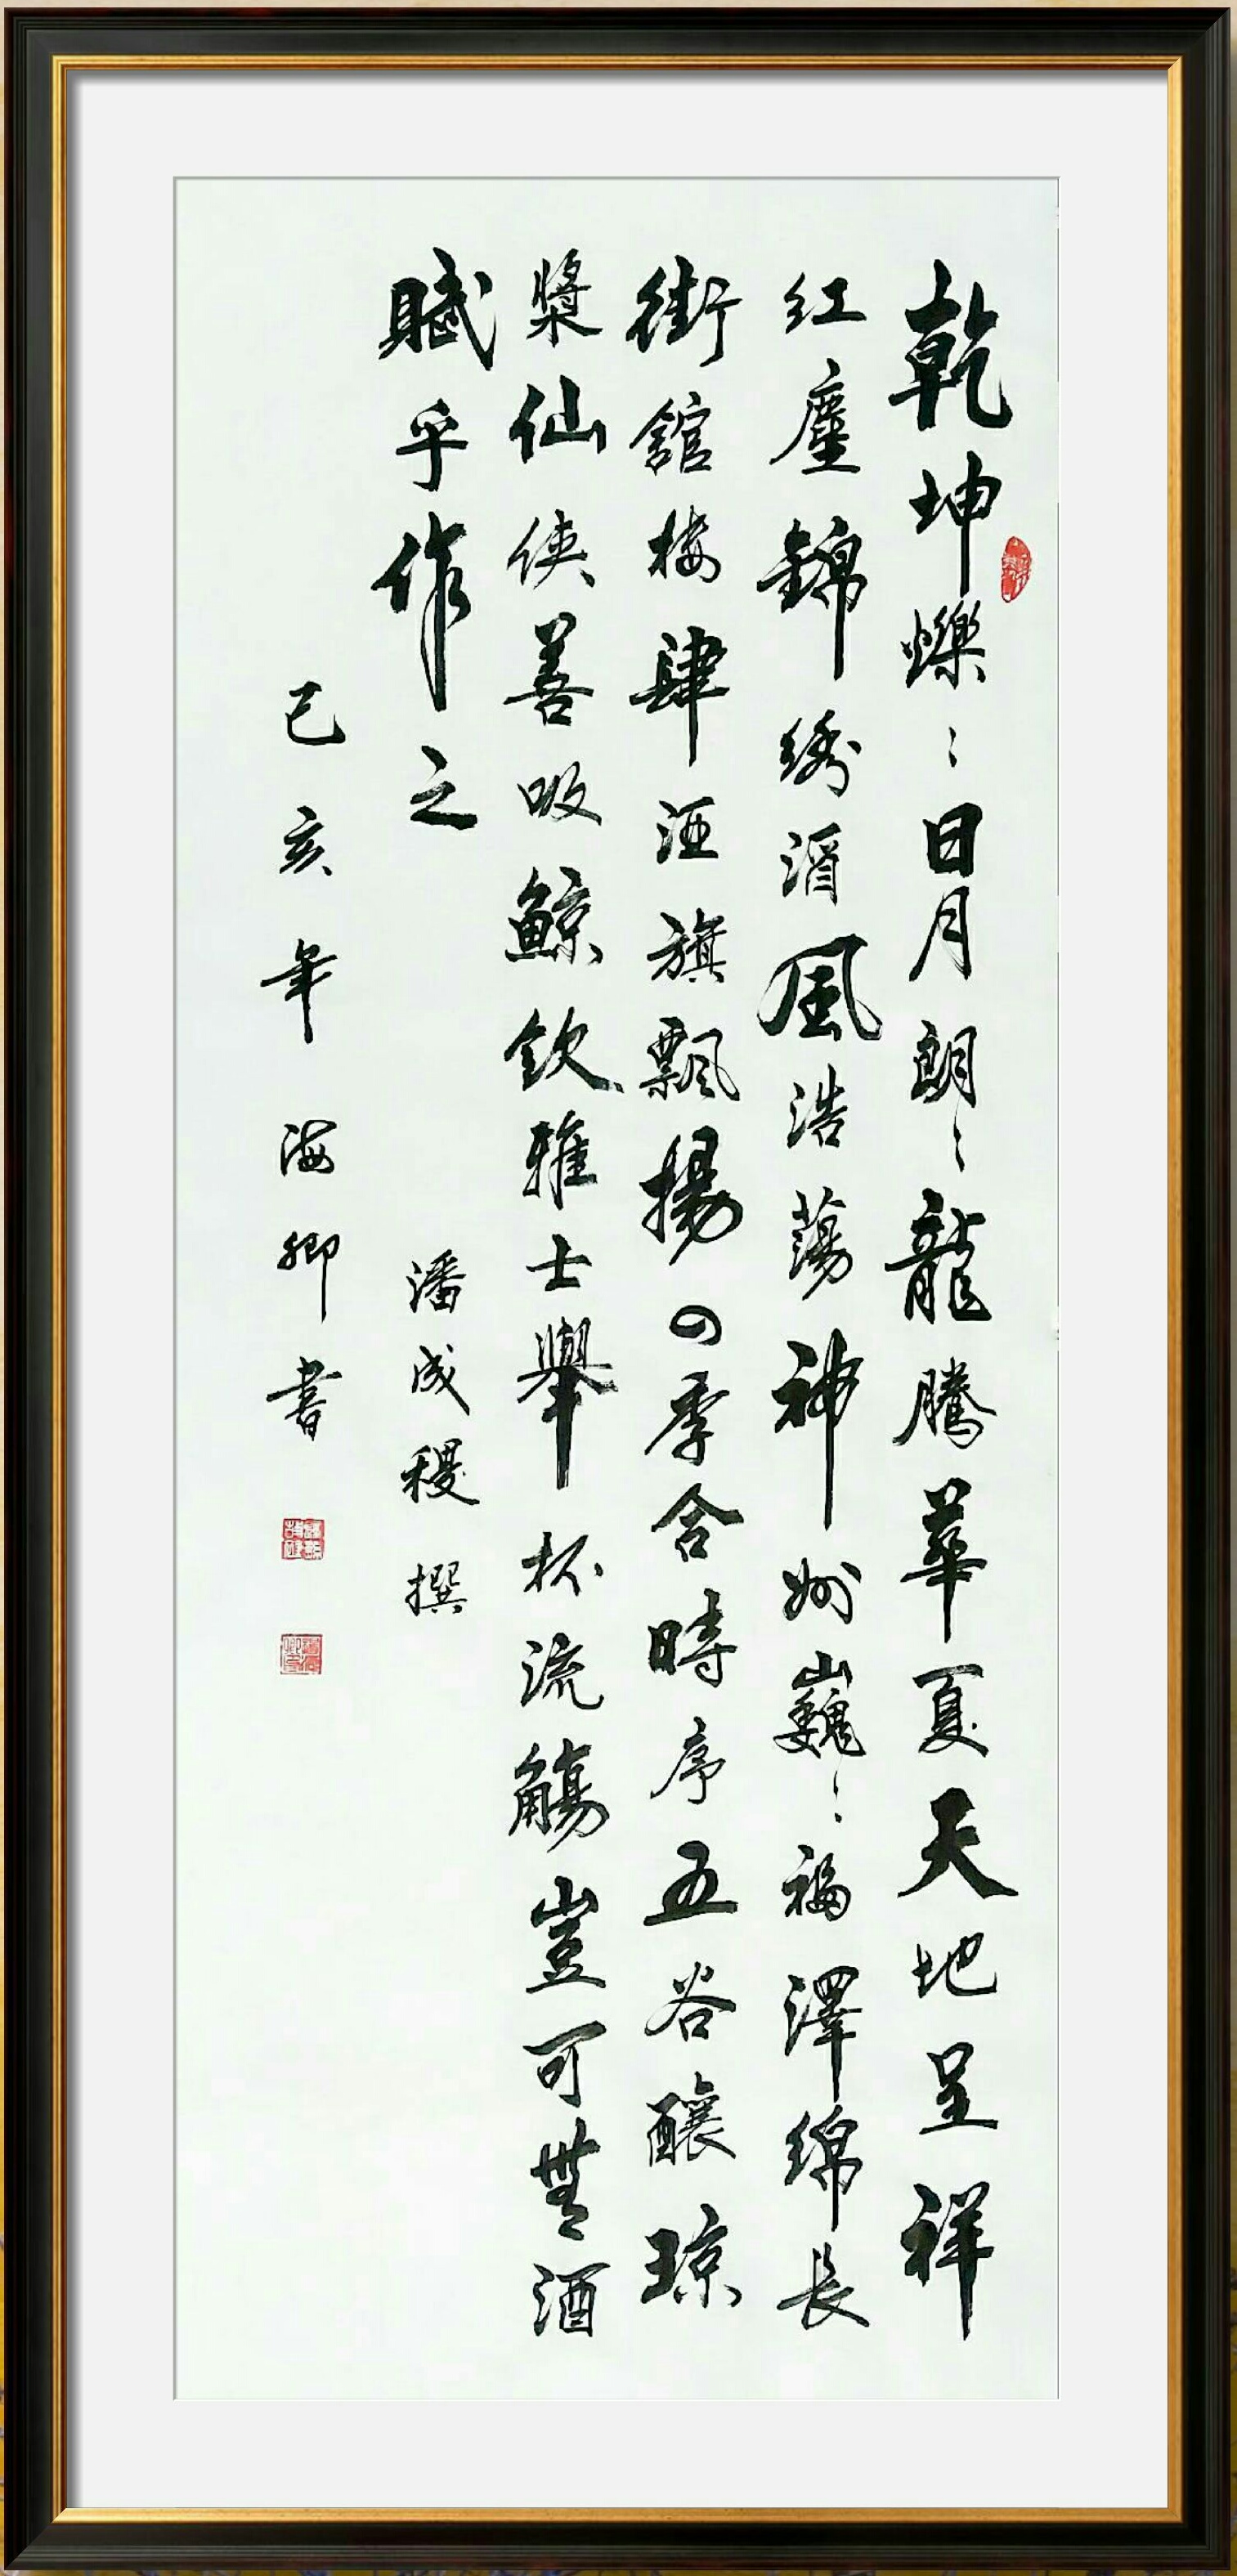 乾坤爍〻日月朗〻龍騰華夏天地呈祥
红塵錦绣酒風浩蕩神州巍〻福澤綿長
街舘楼肆酒旗飄揚四季合時序五谷釀琼
漿仙侠善吸鯨飲雅士舉杯流觴豈可無酒
賦乎作之
潘成稷撰
己亥年海卿書